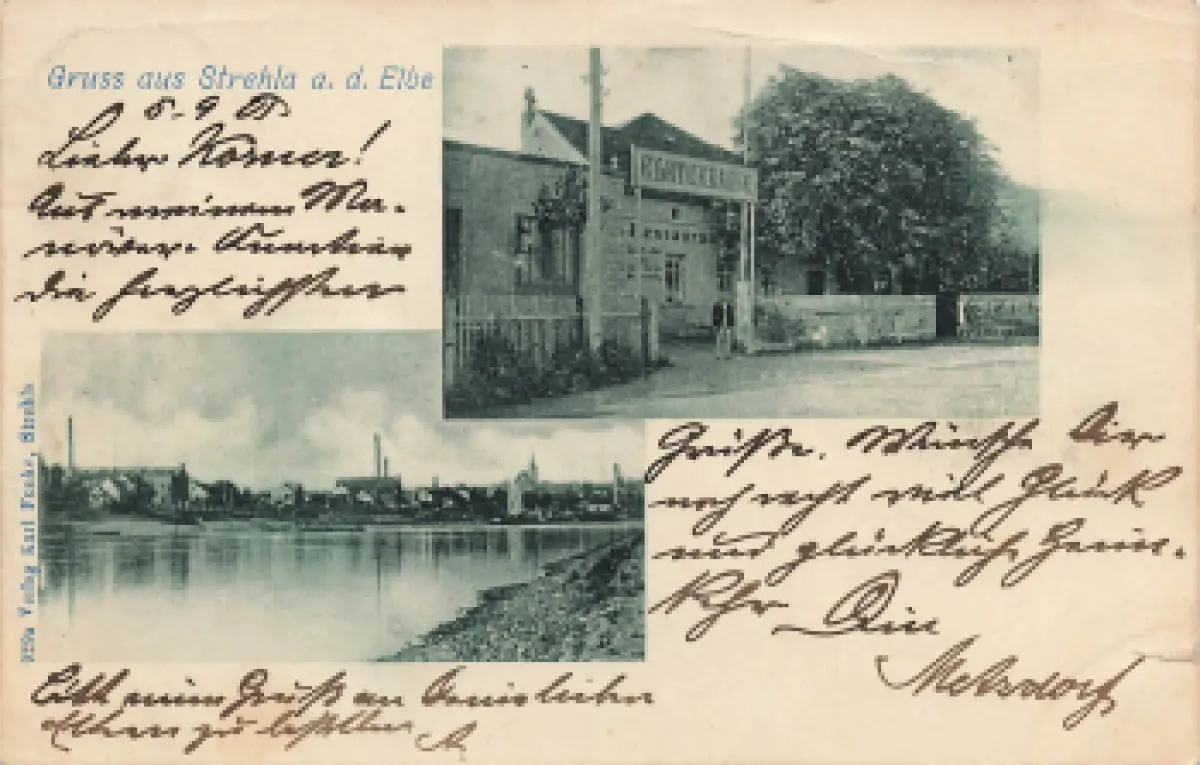 Gruss aus Strehla a. d. Elbe
Lieber Körner!
Auf meinem Ma-
növer
die herzlichsten
Restaurant
Grüße. Wünsche Dir
noch recht viel Glück
und glückliche Heim-
kehr Dein
Melsdorf
Bitte meinen Gruß an Deine lieben
Eltern zu bestellen
Verlag Karl Fuchs, Strehla